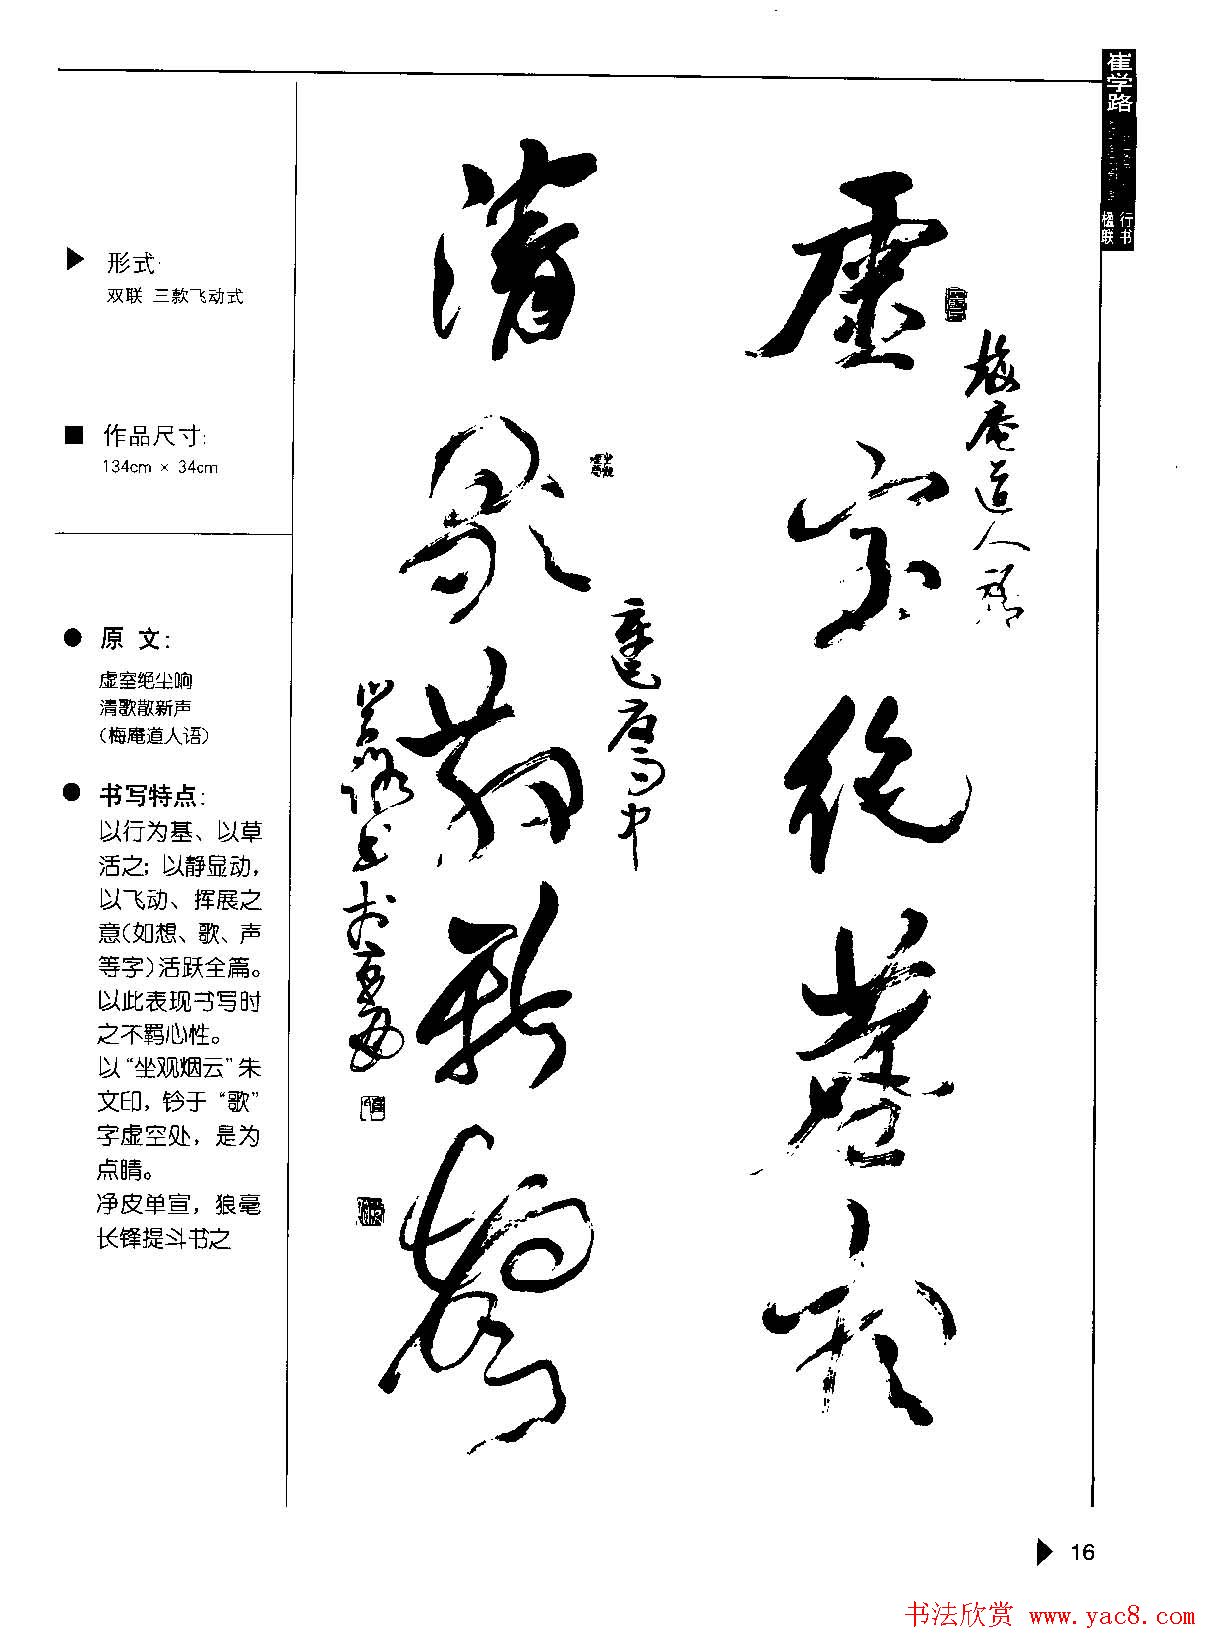 崔学路
行书
楹联
虚室绝塵想
梅庵道人語
清歌散新聲
形式
双联 三款飞动式
作品尺寸:
134cm × 34cm
原 文:
虚室绝尘响
清歌散新声
(梅庵道人语)
书写特点:
以行为基、以草
活之; 以静显动,
以飞动、挥展之
意(如想、歌、声
等字)活跃全篇。
以此表现书写时
之不羁心性。
以“坐观烟云”朱
文印, 钤于“歌”
字虚空处, 是为
点睛。
净皮单宣, 狼毫
长锋提斗书之
16
书法欣赏 www.yac8.com